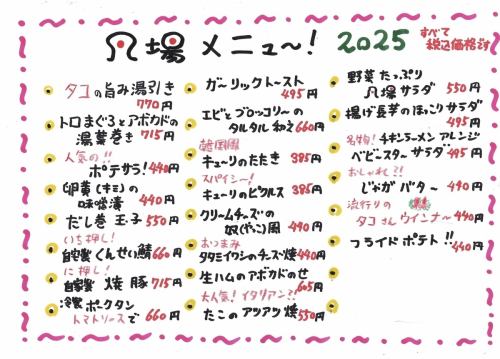 穴場 メニュ〜! 2025 すべて
税込価格です
タコの旨み湯引き
770円
トロまぐろとアボカドの
湯葉巻き 715円
人気の!!
ポテサラ! 440円
卵黄(キミ)の
味噌漬 440円
だし巻玉子 550円
いち押し!
自家製くんせい鯖 660円
に押し!
自家製 焼豚 715円
冷製ポークタン
トマトソースで 660円
ガ〜リックトースト
495円
エビとブロッコリーの
タルタル和え 660円
韓国風
キューリのたたき 385円
スパイシー!
キューリのピクルス 385円
クリームチーズの
奴(やっこ)風 490円
おつまみ
タタミイワシのチーズ焼 440円
生ハムのアボカドのせ
605円
大人気!イタリアン?!
たこのアツアツ焼 550円
野菜たっぷり
穴場サラダ 550円
揚げ長芋のほっこりサラダ
495円
名物!チキンラーメンアレンジ
ベビースターサラダ 495円
おしゃれ?!
じゃがバタ〜 490円
流行りの
タコさんウインナ〜 440円
フライドポテト!! 440円